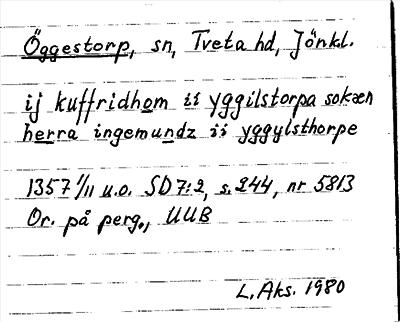 Öggestorp, sn, Tveta hd, Jönkl.
ij kuffridhom ii yggilstorpa sokæn
herra ingemundz ii yggylsthorpe
1357 1/11 u.o. SD 7:2, s. 244, nr 5813
Or. på perg., UUB
L. Aks. 1980